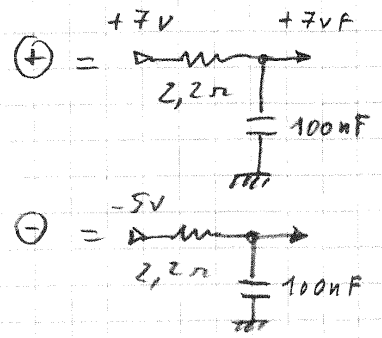 +7V +7VF
⊕ =
2,2Ω
100nF
-5V
⊖ =
2,2Ω
100nF